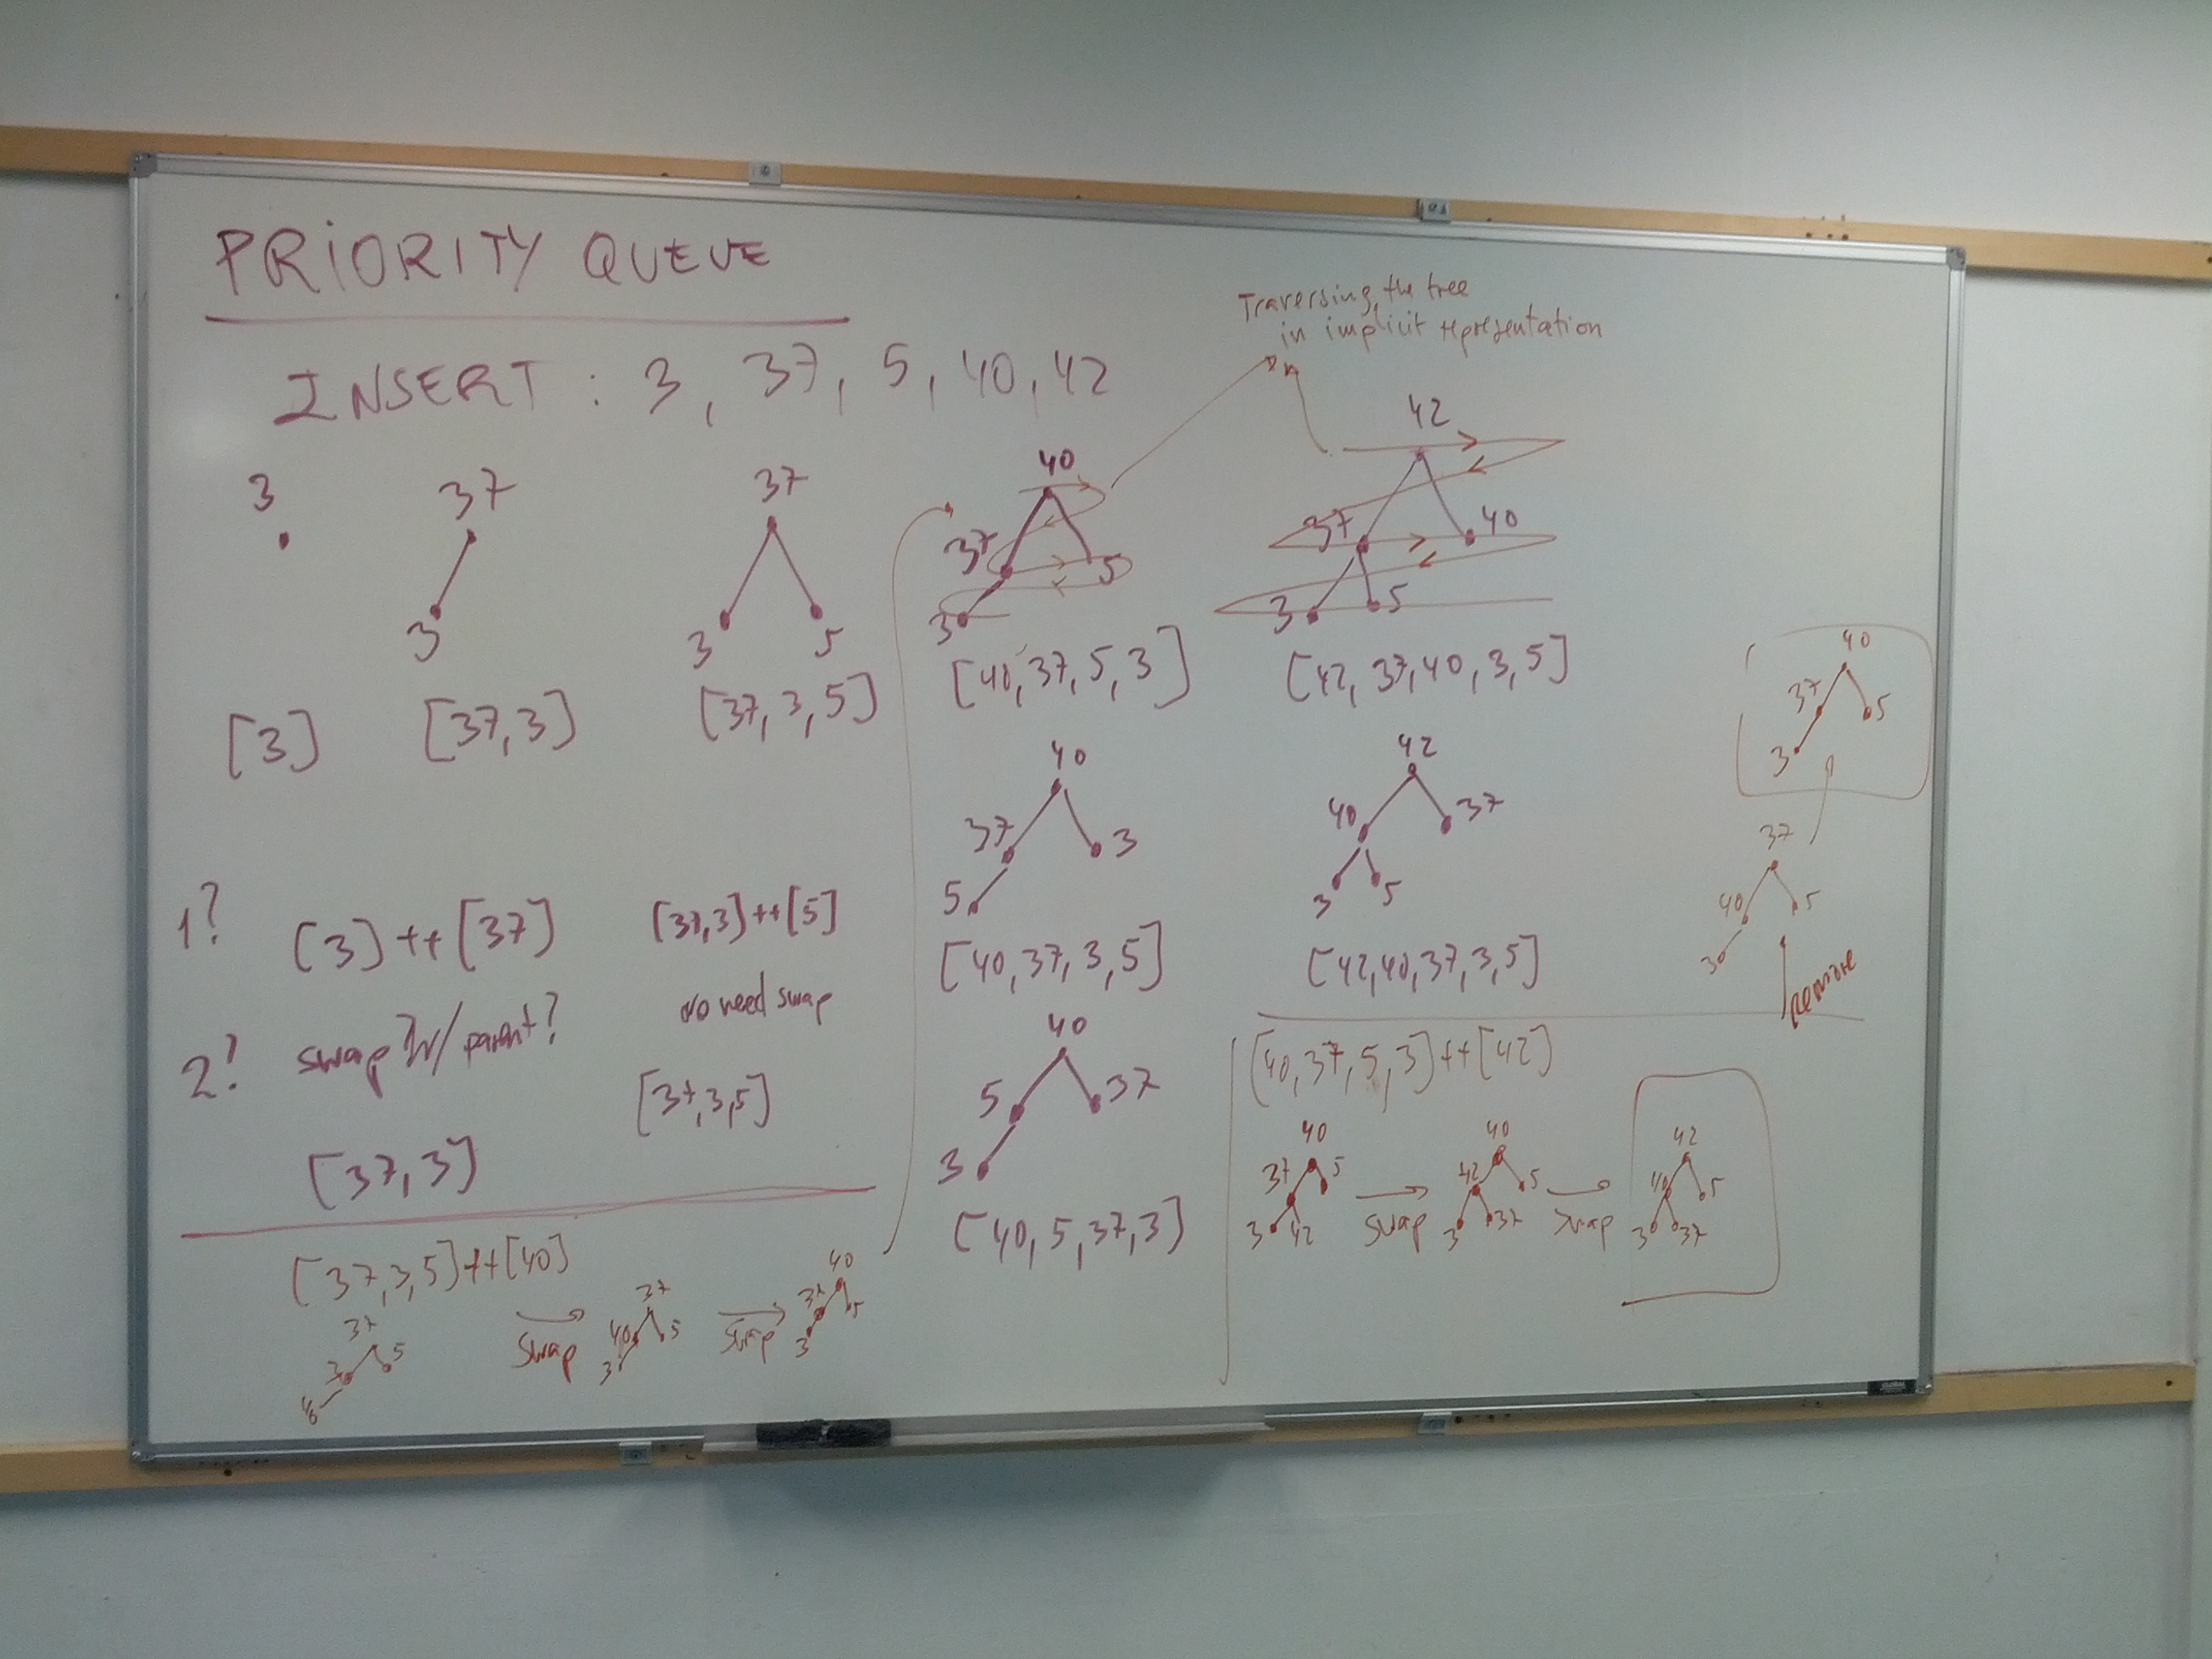 PRIORITY QUEUE
INSERT : 3, 37, 5, 40, 42
3
37
3
37
3
5
[3]
[37,3]
[37,3,5]
1?
[3]++[37]
[37,3]++[5]
2?
swap w/ parent?
No need swap
[37,3]
[37,3,5]
[37,3,5]++[40]
37
3
5
swap
37
40
5
3
swap
40
37
5
3
40
37
5
3
[40,37,5,3]
40
37
3
5
[40,37,3,5]
40
5
37
3
[40,5,37,3]
Traversing the tree
in implicit representation
42
37
40
3
5
[42,37,40,3,5]
42
40
37
3
5
[42,40,37,3,5]
[40,37,5,3]++[42]
40
37
5
3
42
swap
40
42
5
3
37
swap
42
40
5
3
37
40
37
5
3
37
40
5
3
remove